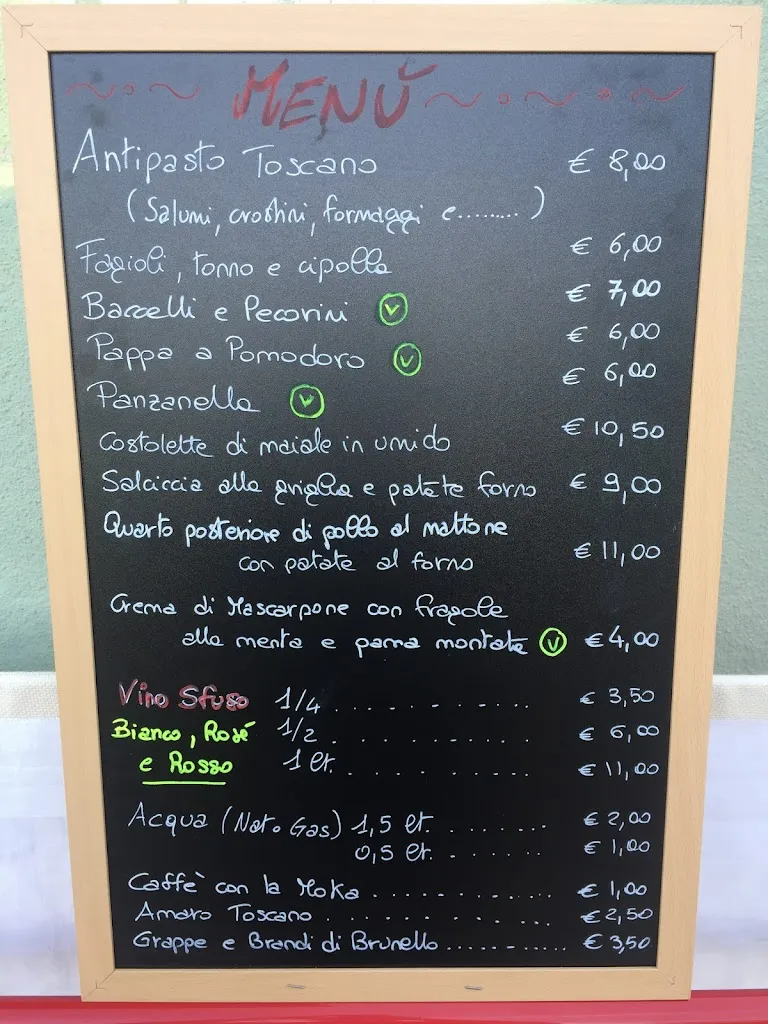 MENÙ
Antipasto Toscano € 8,00
(Salumi, crostini, formaggi e........)
Fagioli, tonno e cipolla € 6,00
Baccelli e Pecorini V € 7,00
Pappa a Pomodoro V € 6,00
Panzanella V € 6,00
Costolette di maiale in umido € 10,50
Salciccia alla griglia e patate forno € 9,00
Quarto posteriore di pollo al mattone
con patate al forno € 11,00
Crema di Mascarpone con fragole
alla menta e panna montata V € 4,00
Vino Sfuso 1/4 .......... € 3,50
Bianco, Rosé 1/2 .......... € 6,00
e Rosso 1 lt. .......... € 11,00
Acqua (Nat. o Gas) 1,5 lt. ....... € 2,00
0,5 lt. ....... € 1,00
Caffè con la Moka ............ € 1,00
Amaro Toscano ............ € 2,50
Grappe e Brandi di Brunello ............ € 3,50